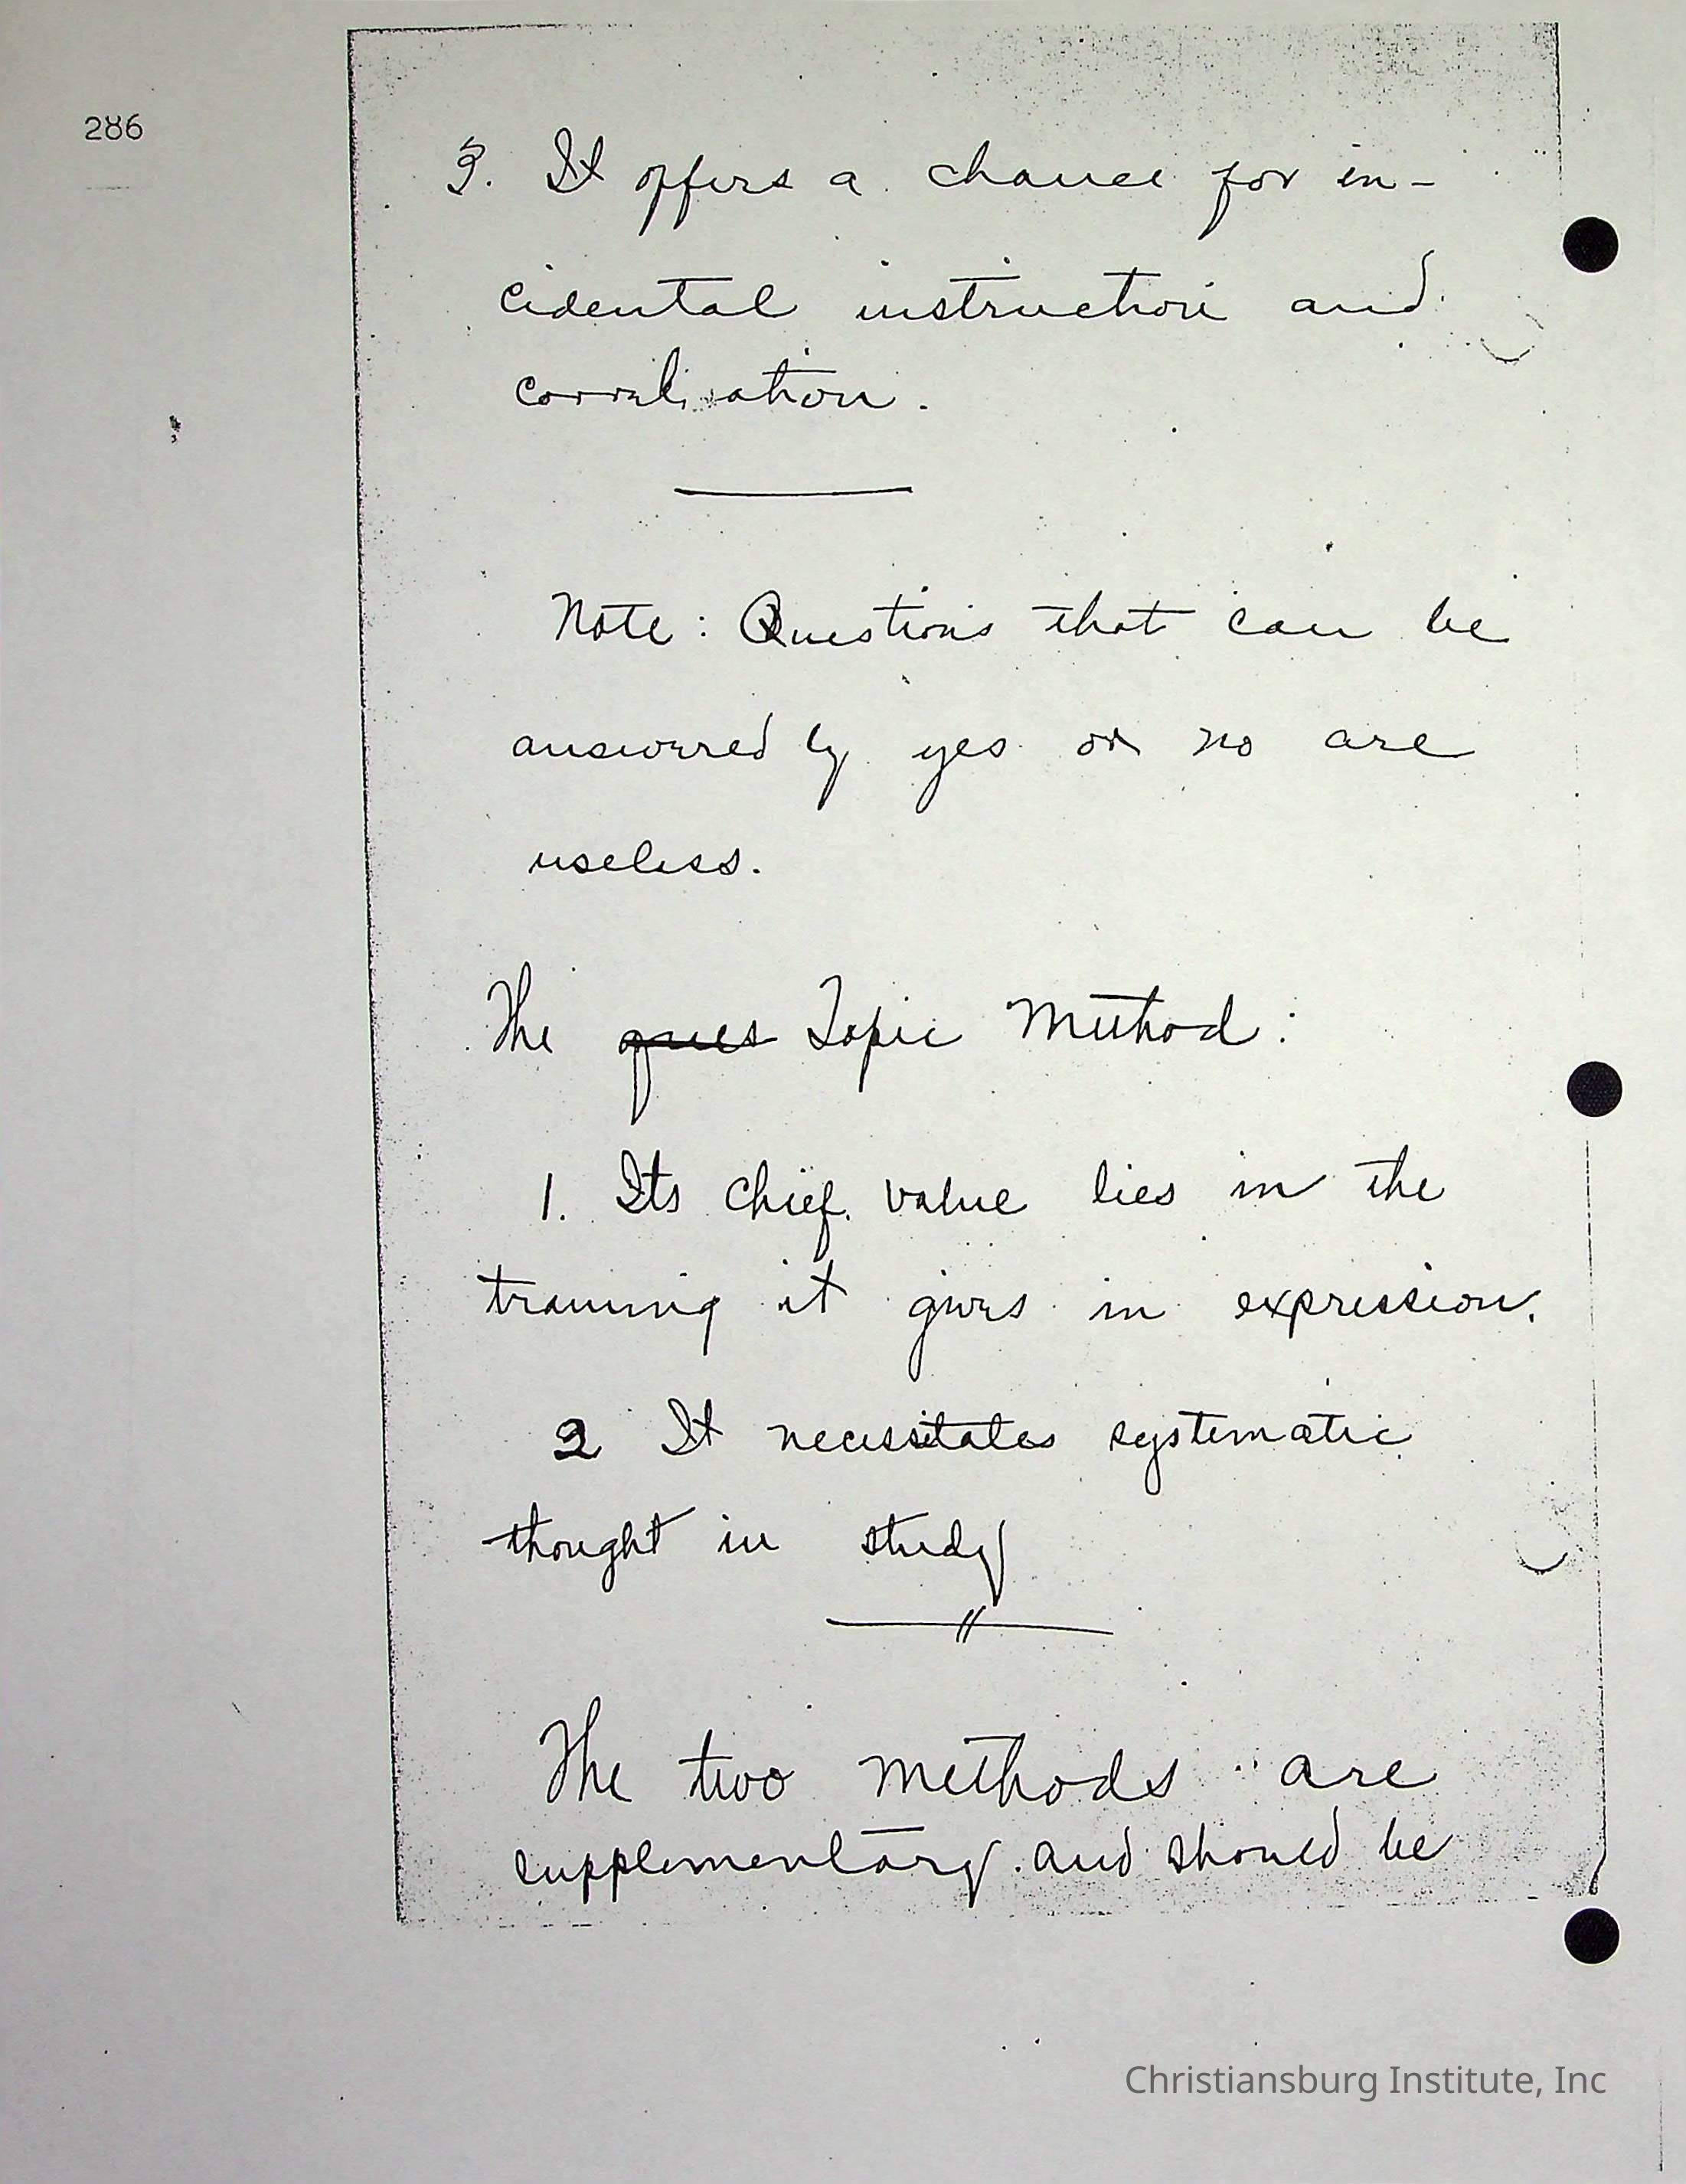 286
3. It offers a chance for in-
cidental instruction and
Note: Questions that can be
answered by yes or no are
useless.
The ques Topic Method:
1. Its chief value lies in the
training it gives in expression.
2 It necessitates systematic
thought in study
The two methods are
supplementary and should be
Christiansburg Institute, Inc